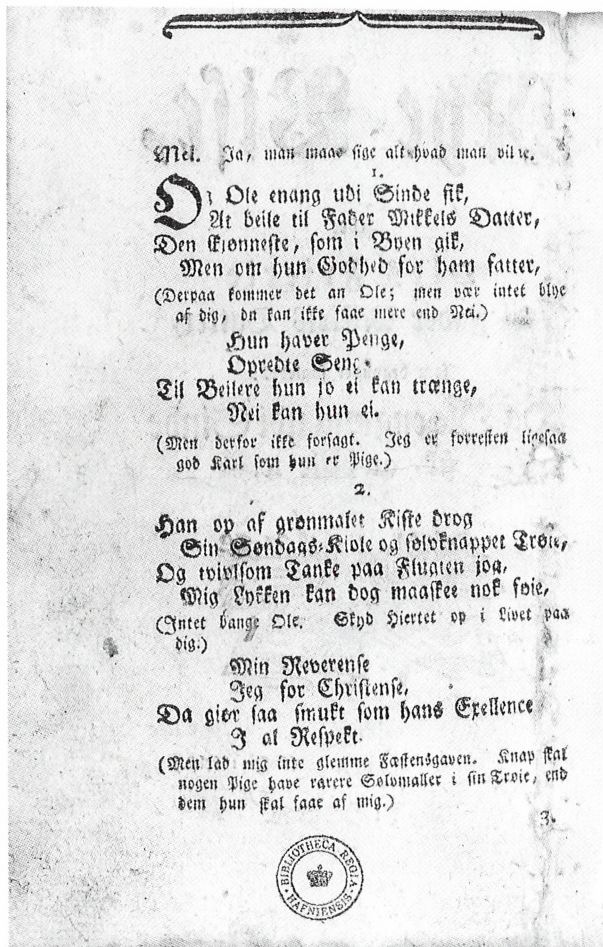 Mel. Ja, man maae sige alt hvad man vil ic.
1.
Og Ole engang udi Sinde fik,
At beile til Fader Mikkels Datter,
Den skjønneste, som i Byen gik,
Men om hun Godhed for ham fatter,
(Derpaa kommer det an Ole; men vær intet blye
af dig, du kan ikke faae mere end Nei.)
Hun haver Penge,
Opredte Seng
Til Beilere hun jo ei kan trænge,
Nei kan hun ei.
(Men derfor ikke forsagt. Jeg er forresten ligesaa
god Karl som hun er Pige.)
2.
Han op af grønmalet Kiste drog
Sin Søndags-Kiole og sølvknappet Trøie,
Og tvivlsom Tanke paa Flugten jog,
Mig Lykken kan dog maaskee nok føie,
(Intet bange Ole. Skyd Hiertet op i Livet paa
dig.)
Min Reverense
Jeg for Christense,
Da giør saa smukt som hans Exellence
I al Respekt.
(Men lad mig inte glemme Fæstensgaven. Knap skal
nogen Pige have rarere Sølvmaller i sin Trøie, end
dem hun skal faae af mig.)
3.
BIBLIOTHECA REGIA
HAFNIENSIS